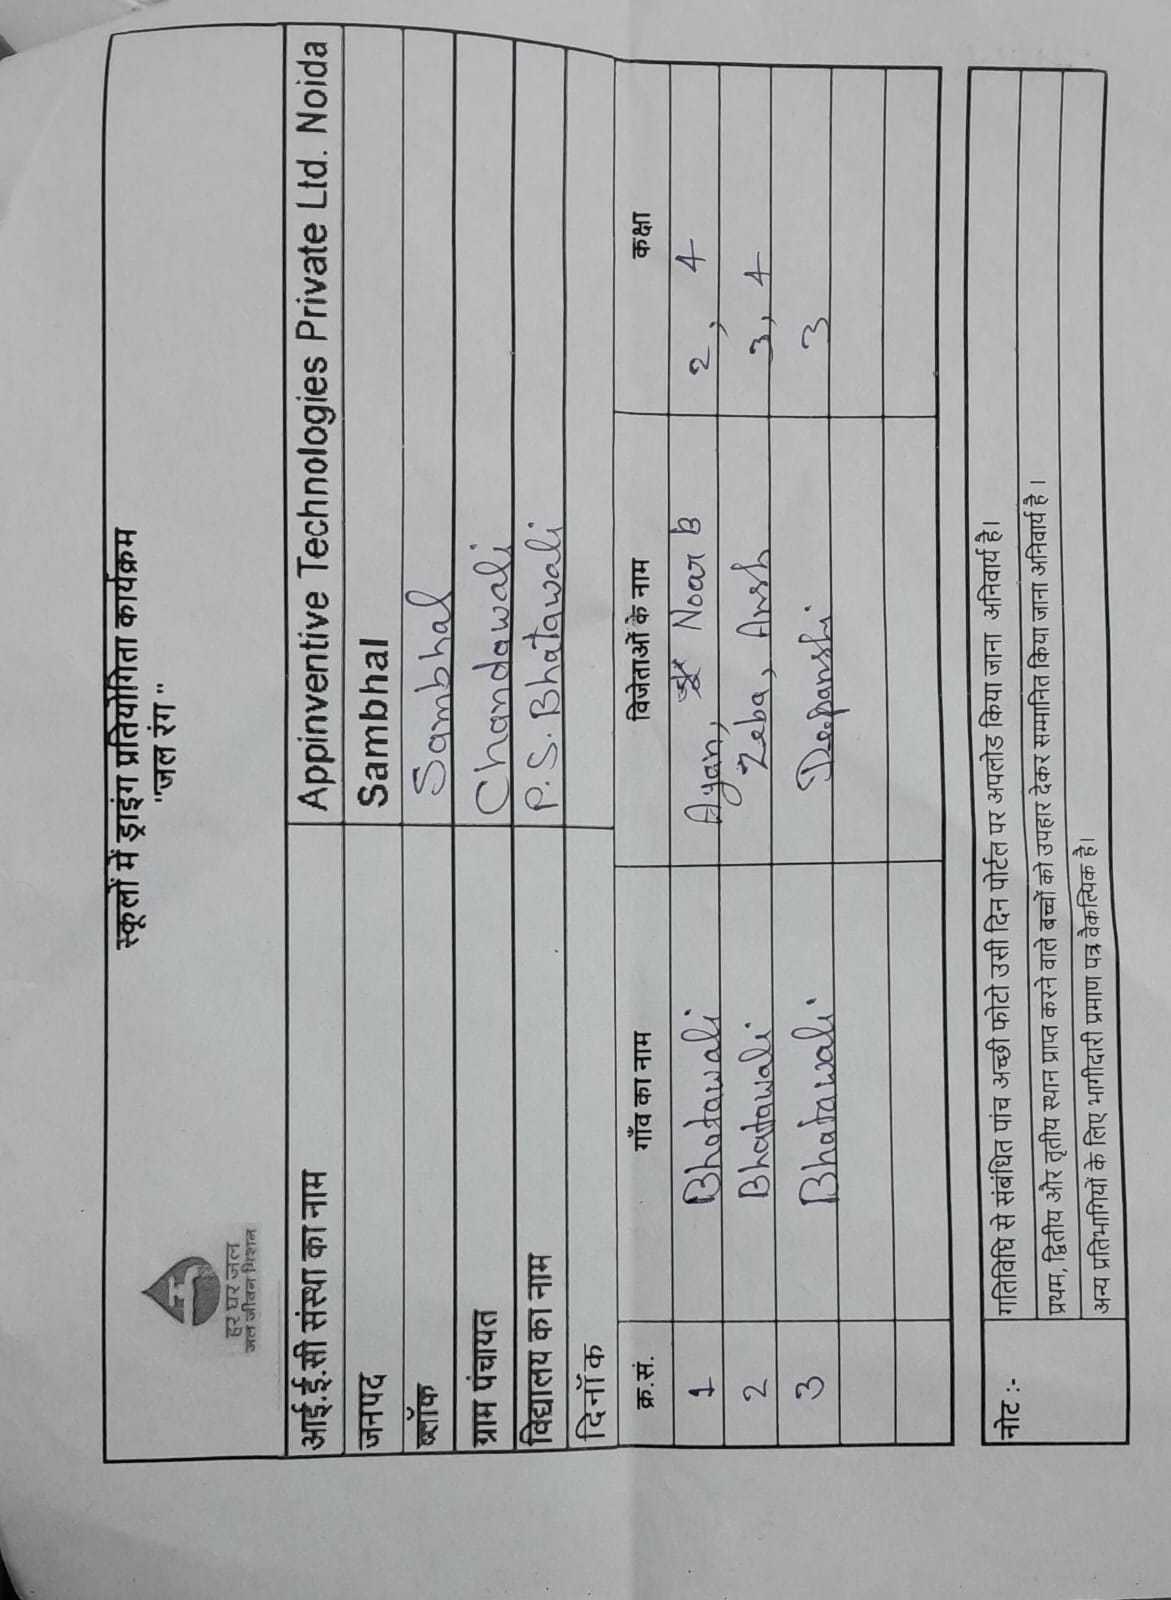 स्कूलों में ड्राइंग प्रतियोगिता कार्यक्रम
"जल रंग"
हर घर जल
जल जीवन मिशन
आई.ई.सी संस्था का नाम Appinventive Technologies Private Ltd. Noida
जनपद Sambhal
ब्लॉक Sambhal
ग्राम पंचायत Chandawali
विद्यालय का नाम P.S. Bhatawali
दिनॉक
क्र.सं. गाँव का नाम विजेताओं के नाम कक्षा
1 Bhatawali Ayan, Noar B 2, 4
2 Bhatawali Zeba, Ansh 3, 4
3 Bhatawali Deepanshi 3
नोट :- गतिविधि से संबंधित पांच अच्छी फोटो उसी दिन पोर्टल पर अपलोड किया जाना अनिवार्य है।
प्रथम, द्वितीय और तृतीय स्थान प्राप्त करने वाले बच्चों को उपहार देकर सम्मानित किया जाना अनिवार्य है।
अन्य प्रतिभागियों के लिए भागीदारी प्रमाण पत्र वैकल्पिक है।